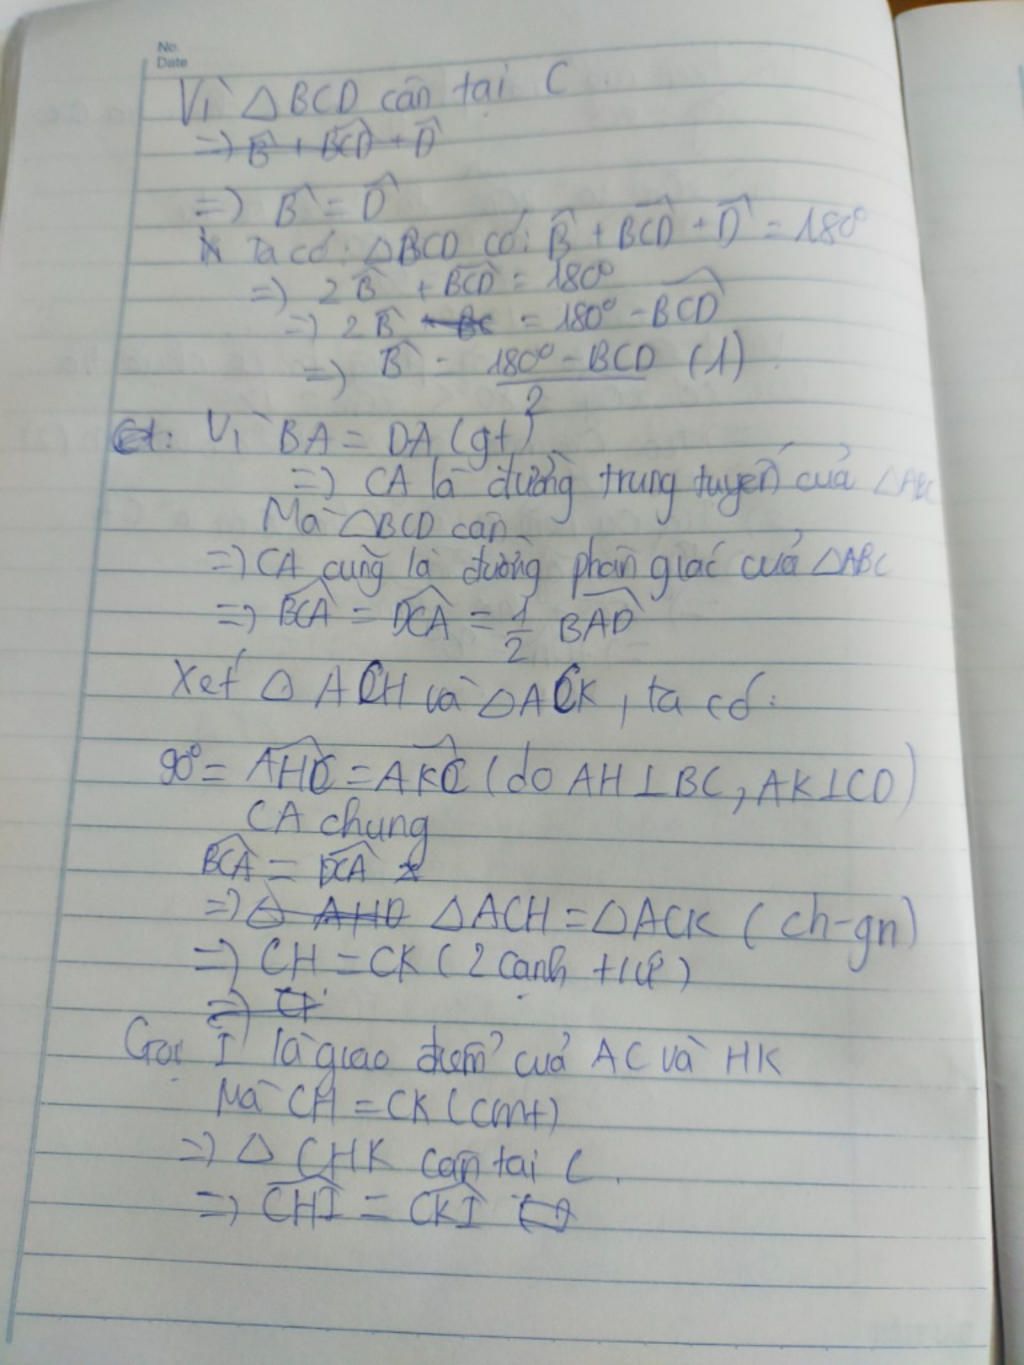 No.
Date
Vì △BCD cân tại C
=> B̂ + BĈD + D̂
=> B̂ = D̂
Ta có: △BCD có: B̂ + BĈD + D̂ = 180°
=> 2B̂ + BĈD = 180°
=> 2B̂ = 180° - BĈD
=> B̂ = (180° - BCD)/2 (1)
Vì BA = DA (gt)
=> CA là đường trung tuyến của △ABC
Mà △BCD cân
=> CA cũng là đường phân giác của △ABC
=> BĈA = DĈA = 1/2 BÂD
Xét △ACH và △ACK, ta có:
90° = AĤC = AK̂C (do AH⊥BC, AK⊥CD)
CA chung
BĈA = DĈA
=> △AHD △ACH = △ACK (ch-gn)
=> CH = CK (2 cạnh tư)
=>
Gọi I là giao điểm của AC và HK
Mà CH = CK (cmt)
=> △CHK cân tại C.
=> CĤI = CK̂I